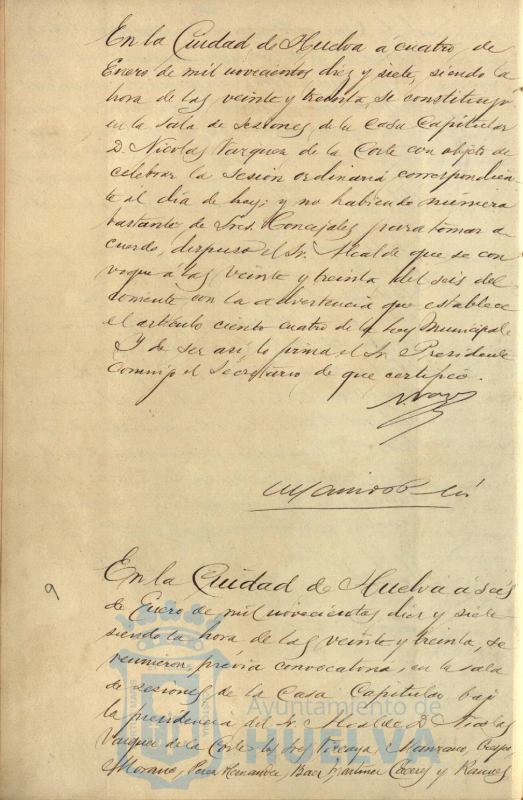 En la Ciudad de Huelva á cuatro de
Enero de mil novecientos diez y siete, siendo la
hora de las veinte y treinta, se constituyó
en la sala de sesiones de la Casa Capitular
D. Nicolas Vazquez de la Corte con objeto de
celebrar la sesion ordinaria correspondien
te al dia de hoy; y no habiendo número
bastante de Sres. Concejales para tomar a
cuerdo, dispuso el Sr. Alcalde que se con
voque a las veinte y treinta del seis del
corriente con la advertencia que establece
el artículo ciento cuatro de la ley Municipal
Y de ser así, lo firma el Sr. Presidente
conmigo el Secretario de que certifico.
9
En la Ciudad de Huelva á seis
de Enero de mil novecientos diez y siete
siendo la hora de las veinte y treinta, se
reunieron, prévia convocatoria, en la sala
de sesiones de la Casa Capitular bajo
la presidencia del Sr. Alcalde D. Nicolas
Vazquez de la Corte los Sres Vizcaya, Manzano, Crespo,
Morano, Perez Hernandez, Baez, Martinez Caceres y Ramos
Ayuntamiento de
HUELVA